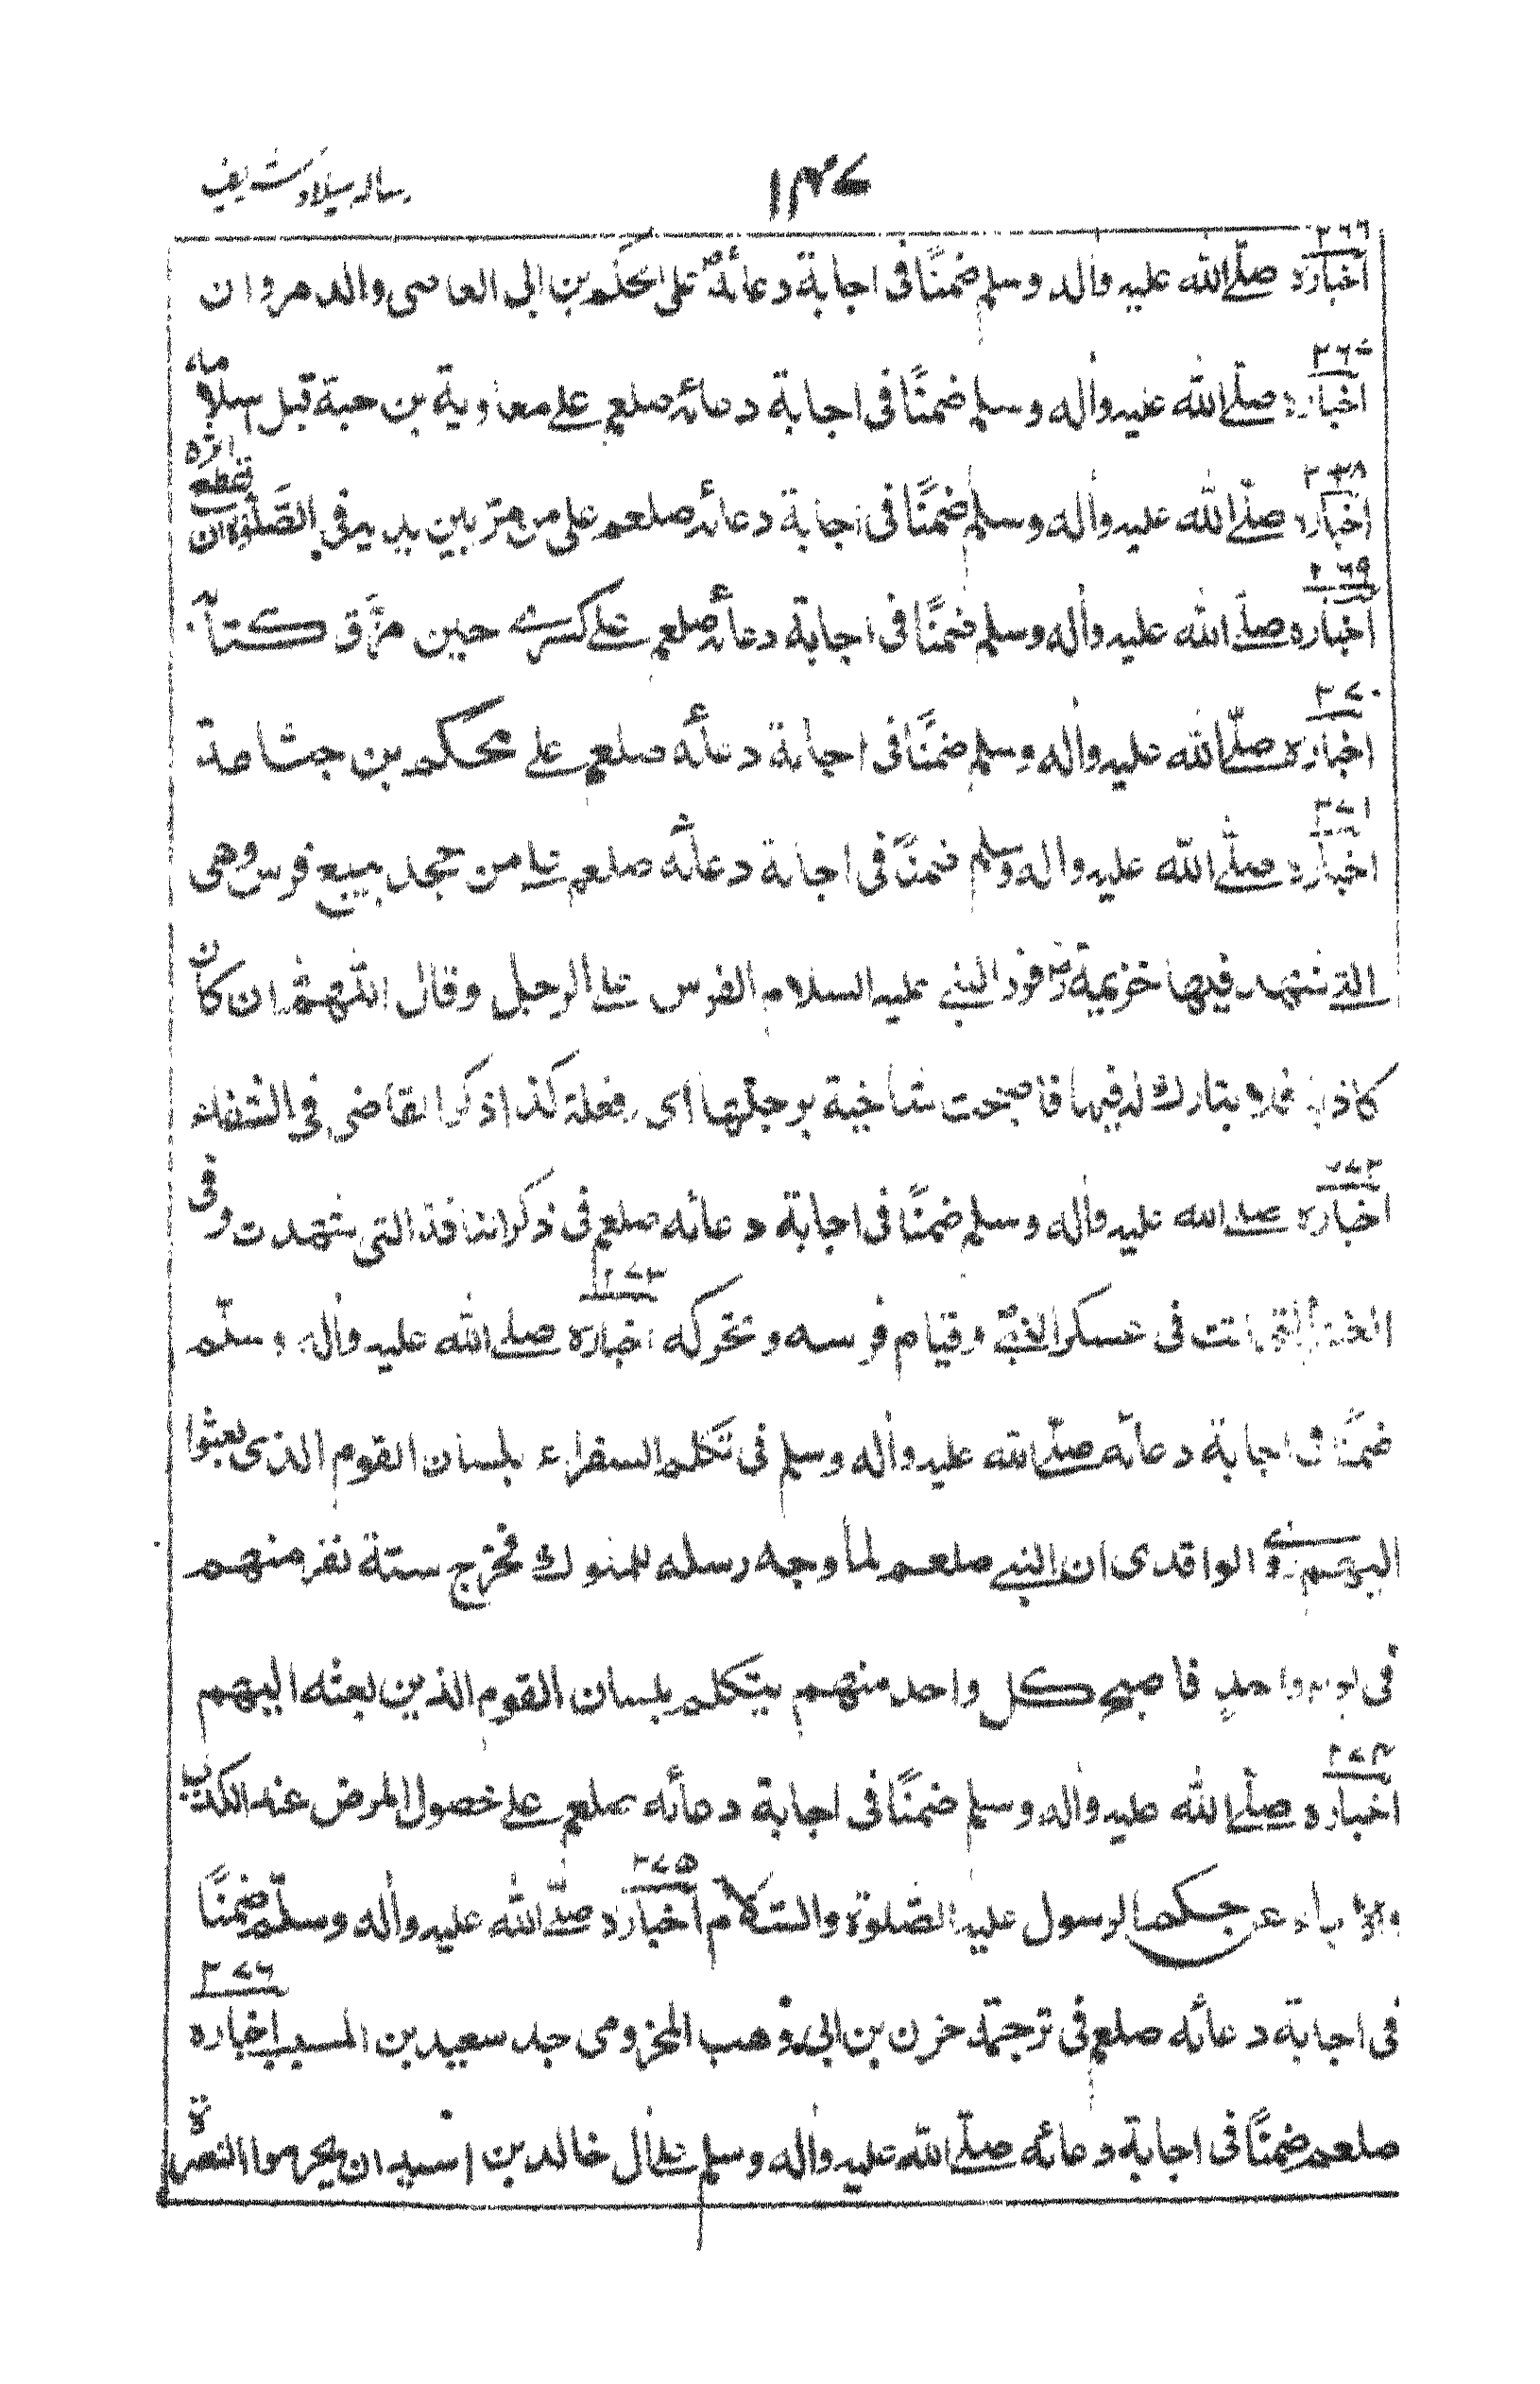 ١٣٧ رساله میلاد شریف
٢٦٦
اخباره صلّے الله عليه واٰله وسلم ضمنًا فى اجابة دعائهٖ علی الحکم بن ابي العاصى والد مروان
٢٦٧
اخباره صلّے الله عليه واٰله وسلم ضمنًا فى اجابة دعائه صلعم علے معاوية بن حبة قبل اسلامه
٢٦٨
اخباره صلّے الله عليه واٰله وسلم ضمنًا فى اجابة دعائه صلعم على من مرّ بين يديه فى الصّلٰوة ان تقطع اثره
٢٦٩
اخباره صلّے الله عليه واٰله وسلم ضمنًا فى اجابة دعائه صلعم علے كسرے حين مزّق كتابه
٢٧٠
اخباره صلّے الله عليه واٰله وسلم ضمنًا فى اجابة دعائه صلعم علے محكم بن جثامة
٢٧١
اخباره صلّے الله عليه واله وسلم ضمنًا فى اجابة دعائه صلعم علے من جحد ببيع فرس وهى
التے شهد فيها خزيمة فرد النبے عليه السلام الفرس علے الرجل وقال اللهم ان كان
كاذبا فلا تبارك له فيها فاصبحت شاخية برجلها اى رفعلة كذا ذكر القاضى فى الشفاء
٢٧٢
اخباره صلے الله عليه واٰله وسلم ضمنًا فى اجابة دعائه صلعم فى ذكر الناقة التى شهدت وفى
فى عسكر النبے وقيام فرسه وتحركه ٢٧٣ اخباره صلے الله عليه واٰله وسلّم
ضمنًا فى اجابة دعائه صلّے الله عليه واٰله وسلم فى تكلم السفراء بلسان القوم الذى بعثوا
اليهم روى الواقدى ان النبے صلعم لما وجه رسله للملوك فخرج ستة نفر منهم
فى يوم واحدٍ فاصبح كل واحد منهم يتكلم بلسان القوم الذين بعثه اليهم
٢٧٤
اخباره صلّے الله عليه واٰله وسلم ضمنًا فى اجابة دعائه صلعم علے حصول المرض عند الكذب
الرسول عليه الصّلوة والسّلام ٢٧٥ اخباره صلّے الله عليه واٰله وسلّم ضمنًا
فى اجابة دعائه صلعم فى ترجمة حزن بن ابى وهب المخزومى جد سعيد بن المسيب ٢٧٦ اخباره
صلعم ضمنًا فى اجابة دعائه صلّے الله عليه واٰله وسلم علے اٰل خالد بن اسيد ان يحرموا النصرة